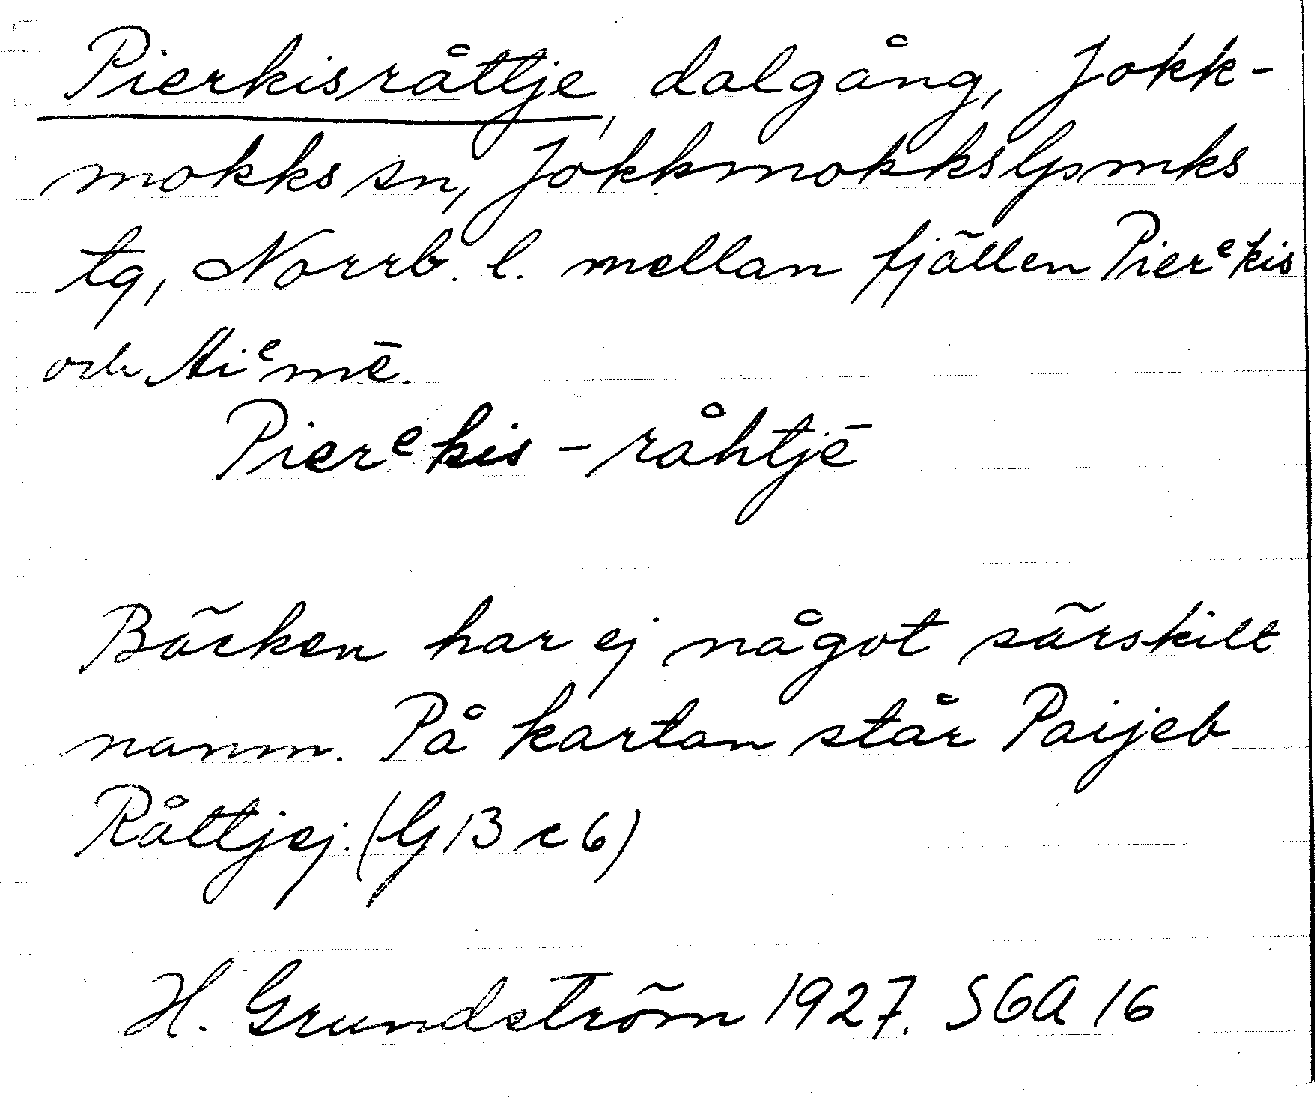 Pierkisråttje, dalgång, Jokk-
mokks sn, Jokkmokks lpmks
tg, Norrb. l. mellan fjällen Pierᵉkis
och Aiᵉmē.
Pierᵉkis-råhtjē
Bäcken har ej något särskilt
namn. På kartan står Paijeb
Råttjej. (G 13 c 6)
H. Grundström 1927. SGA 16